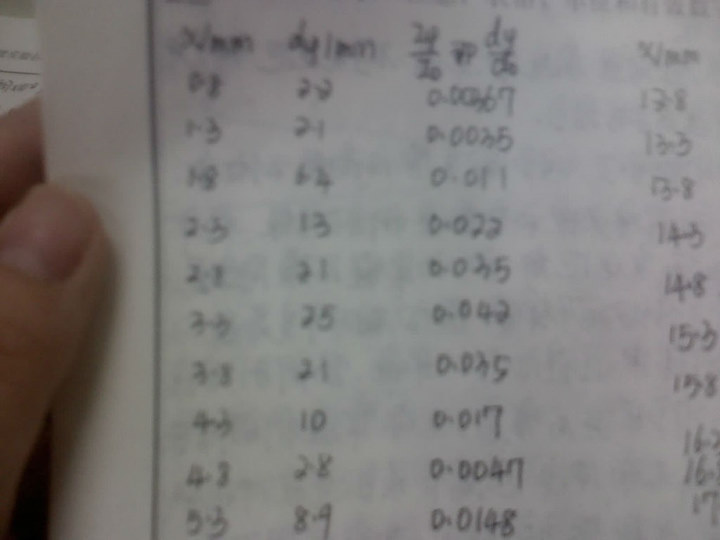 x/mm dy/mm x/mm
0.8 2.2 0.00367 12.8
1.3 2.1 0.0035 13.3
1.8 6.4 0.011 13.8
2.3 13 0.022 14.3
2.8 21 0.035 14.8
3.3 25 0.042 15.3
3.8 21 0.035 15.8
4.3 10 0.017
4.8 2.8 0.0047
5.3 8.9 0.0148